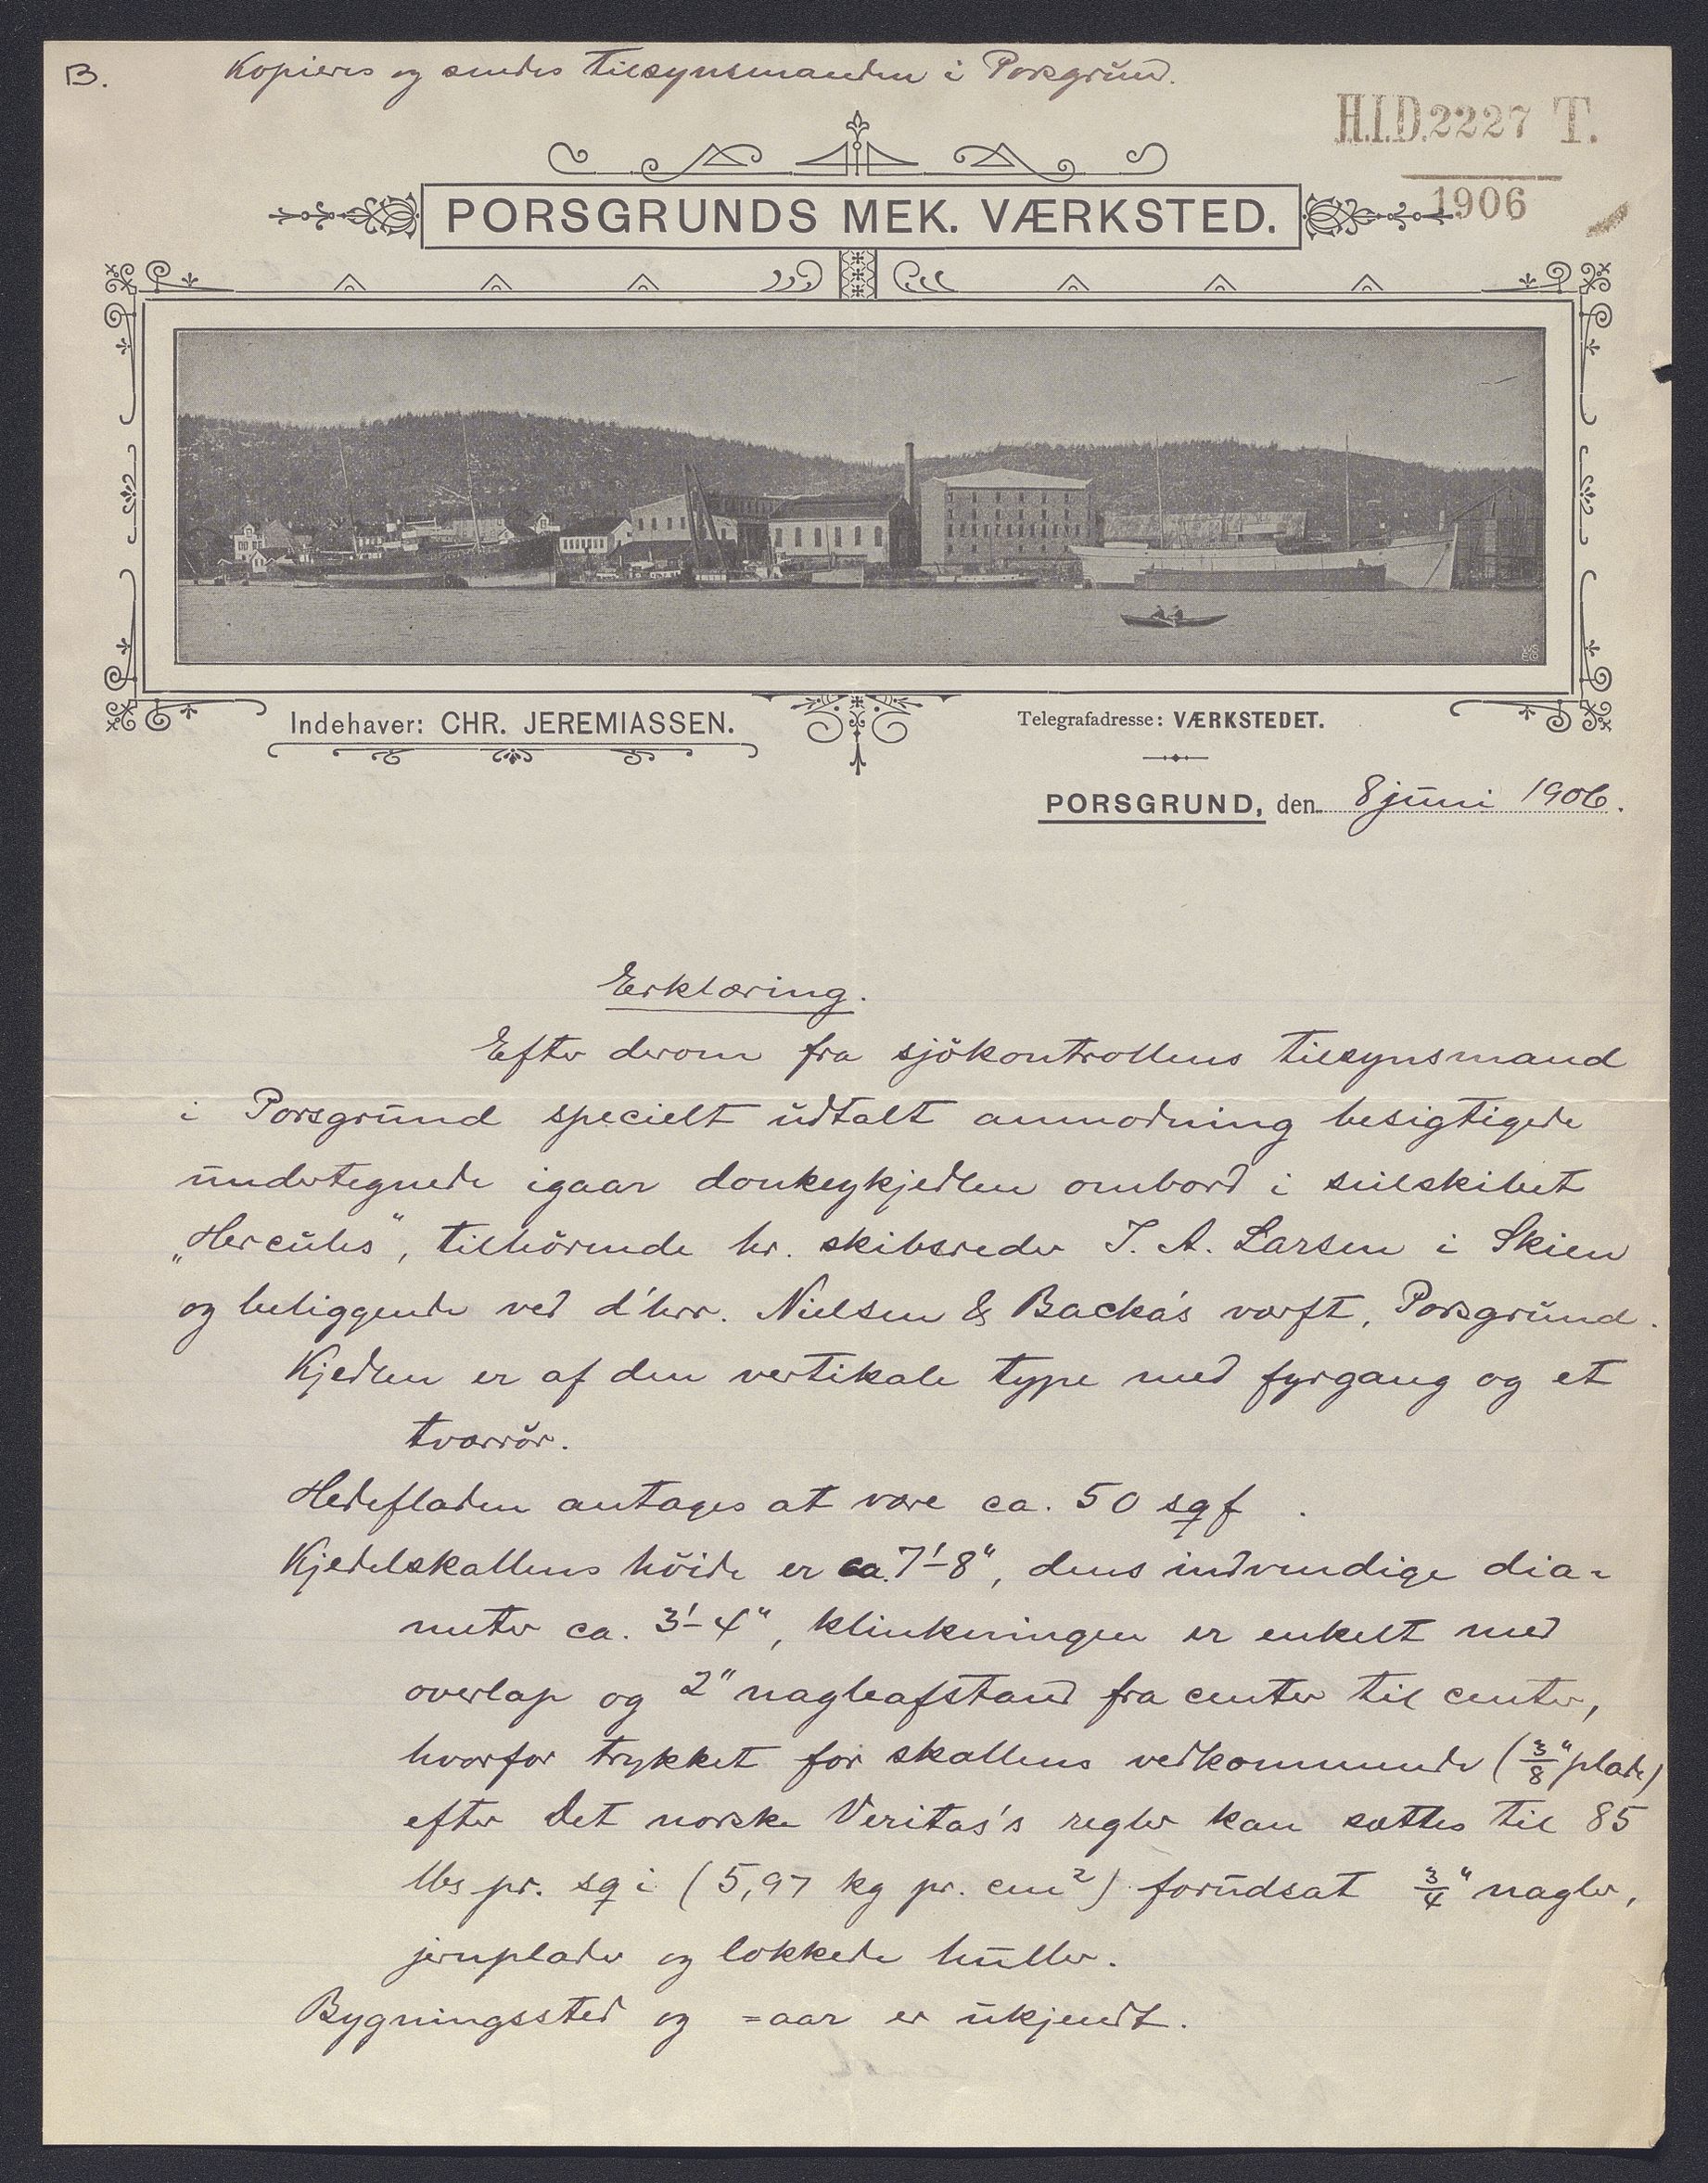 B.
Kopieres og sendes tilsynsmanden i Porsgrund.
H.I.D. 2227 T.
1906
PORSGRUNDS MEK. VÆRKSTED.
Indehaver: CHR. JEREMIASSEN.
Telegrafadresse: VÆRKSTEDET.
PORSGRUND, den 8 juni 1906.
Erklæring.
Efter derom fra sjökontrollens tilsynsmand
i Porsgrund specielt udtalt anmodning besigtigede
undertegnede igaar donkeykjedlen ombord i seilskibet
„Hercules", tilhörende hr. skibsreder J. A. Larsen i Skien
og beliggende ved d'hrr. Nielsen & Backa's værft, Porsgrund.
Kjedlen er af den vertikale type med fyrgang og et
tværrör.
Hedefladen antages at være ca. 50 sqf.
Kjedelskallens höide er ca. 7'-8", dens indvendige dia-
meter ca. 3'-4", klinkningen er enkelt med
overlap og 2" nagleafstand fra center til center,
hvorfor trykket for skallens vedkommende (3/8" plade)
efter Det norske Veritas's regler kan sættes til 85
lbs pr. sq i (5,97 kg pr. cm²) forudsat 3/4" nagler,
jernplader og lokkede huller.
Bygningssted og =aar er ukjendt.